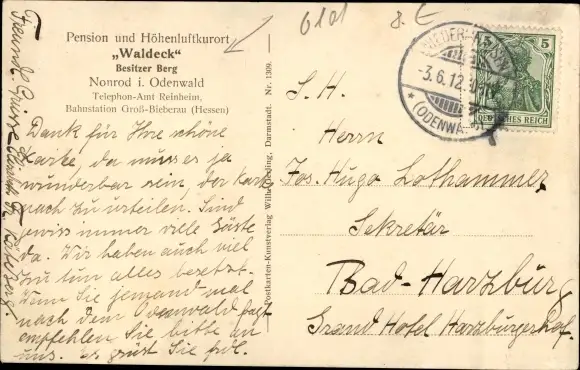 Pension und Höhenluftkurort
„Waldeck“
Besitzer Berg
Nonrod i. Odenwald
Telephon-Amt Reinheim,
Bahnstation Groß-Bieberau (Hessen)
Dank für Ihre schöne
Karte, da muss es ja
wunderbar sein, der Karte
nach zu urteilen. Sind
gewiss nummer viele Gäste
da. Wir haben auch viel
zu tun alles besetzt.
Wenn Sie jemand mal
nach dem Odenwald
empfehlen Sie bitte an
uns. Es grüst Sie frdl.
Freundl. Grüsse
Postkarten-Kunstverlag Wilh. Gerling, Darmstadt. Nr. 1309.
S. H.
Herrn
Jos. Hugo Lothammer
Sekretär
Bad-Harzburg
Grand Hotel Harzburgerhof.
-3.6.12.
* (ODENWALD)
5 5
DEUTSCHES REICH
8.E